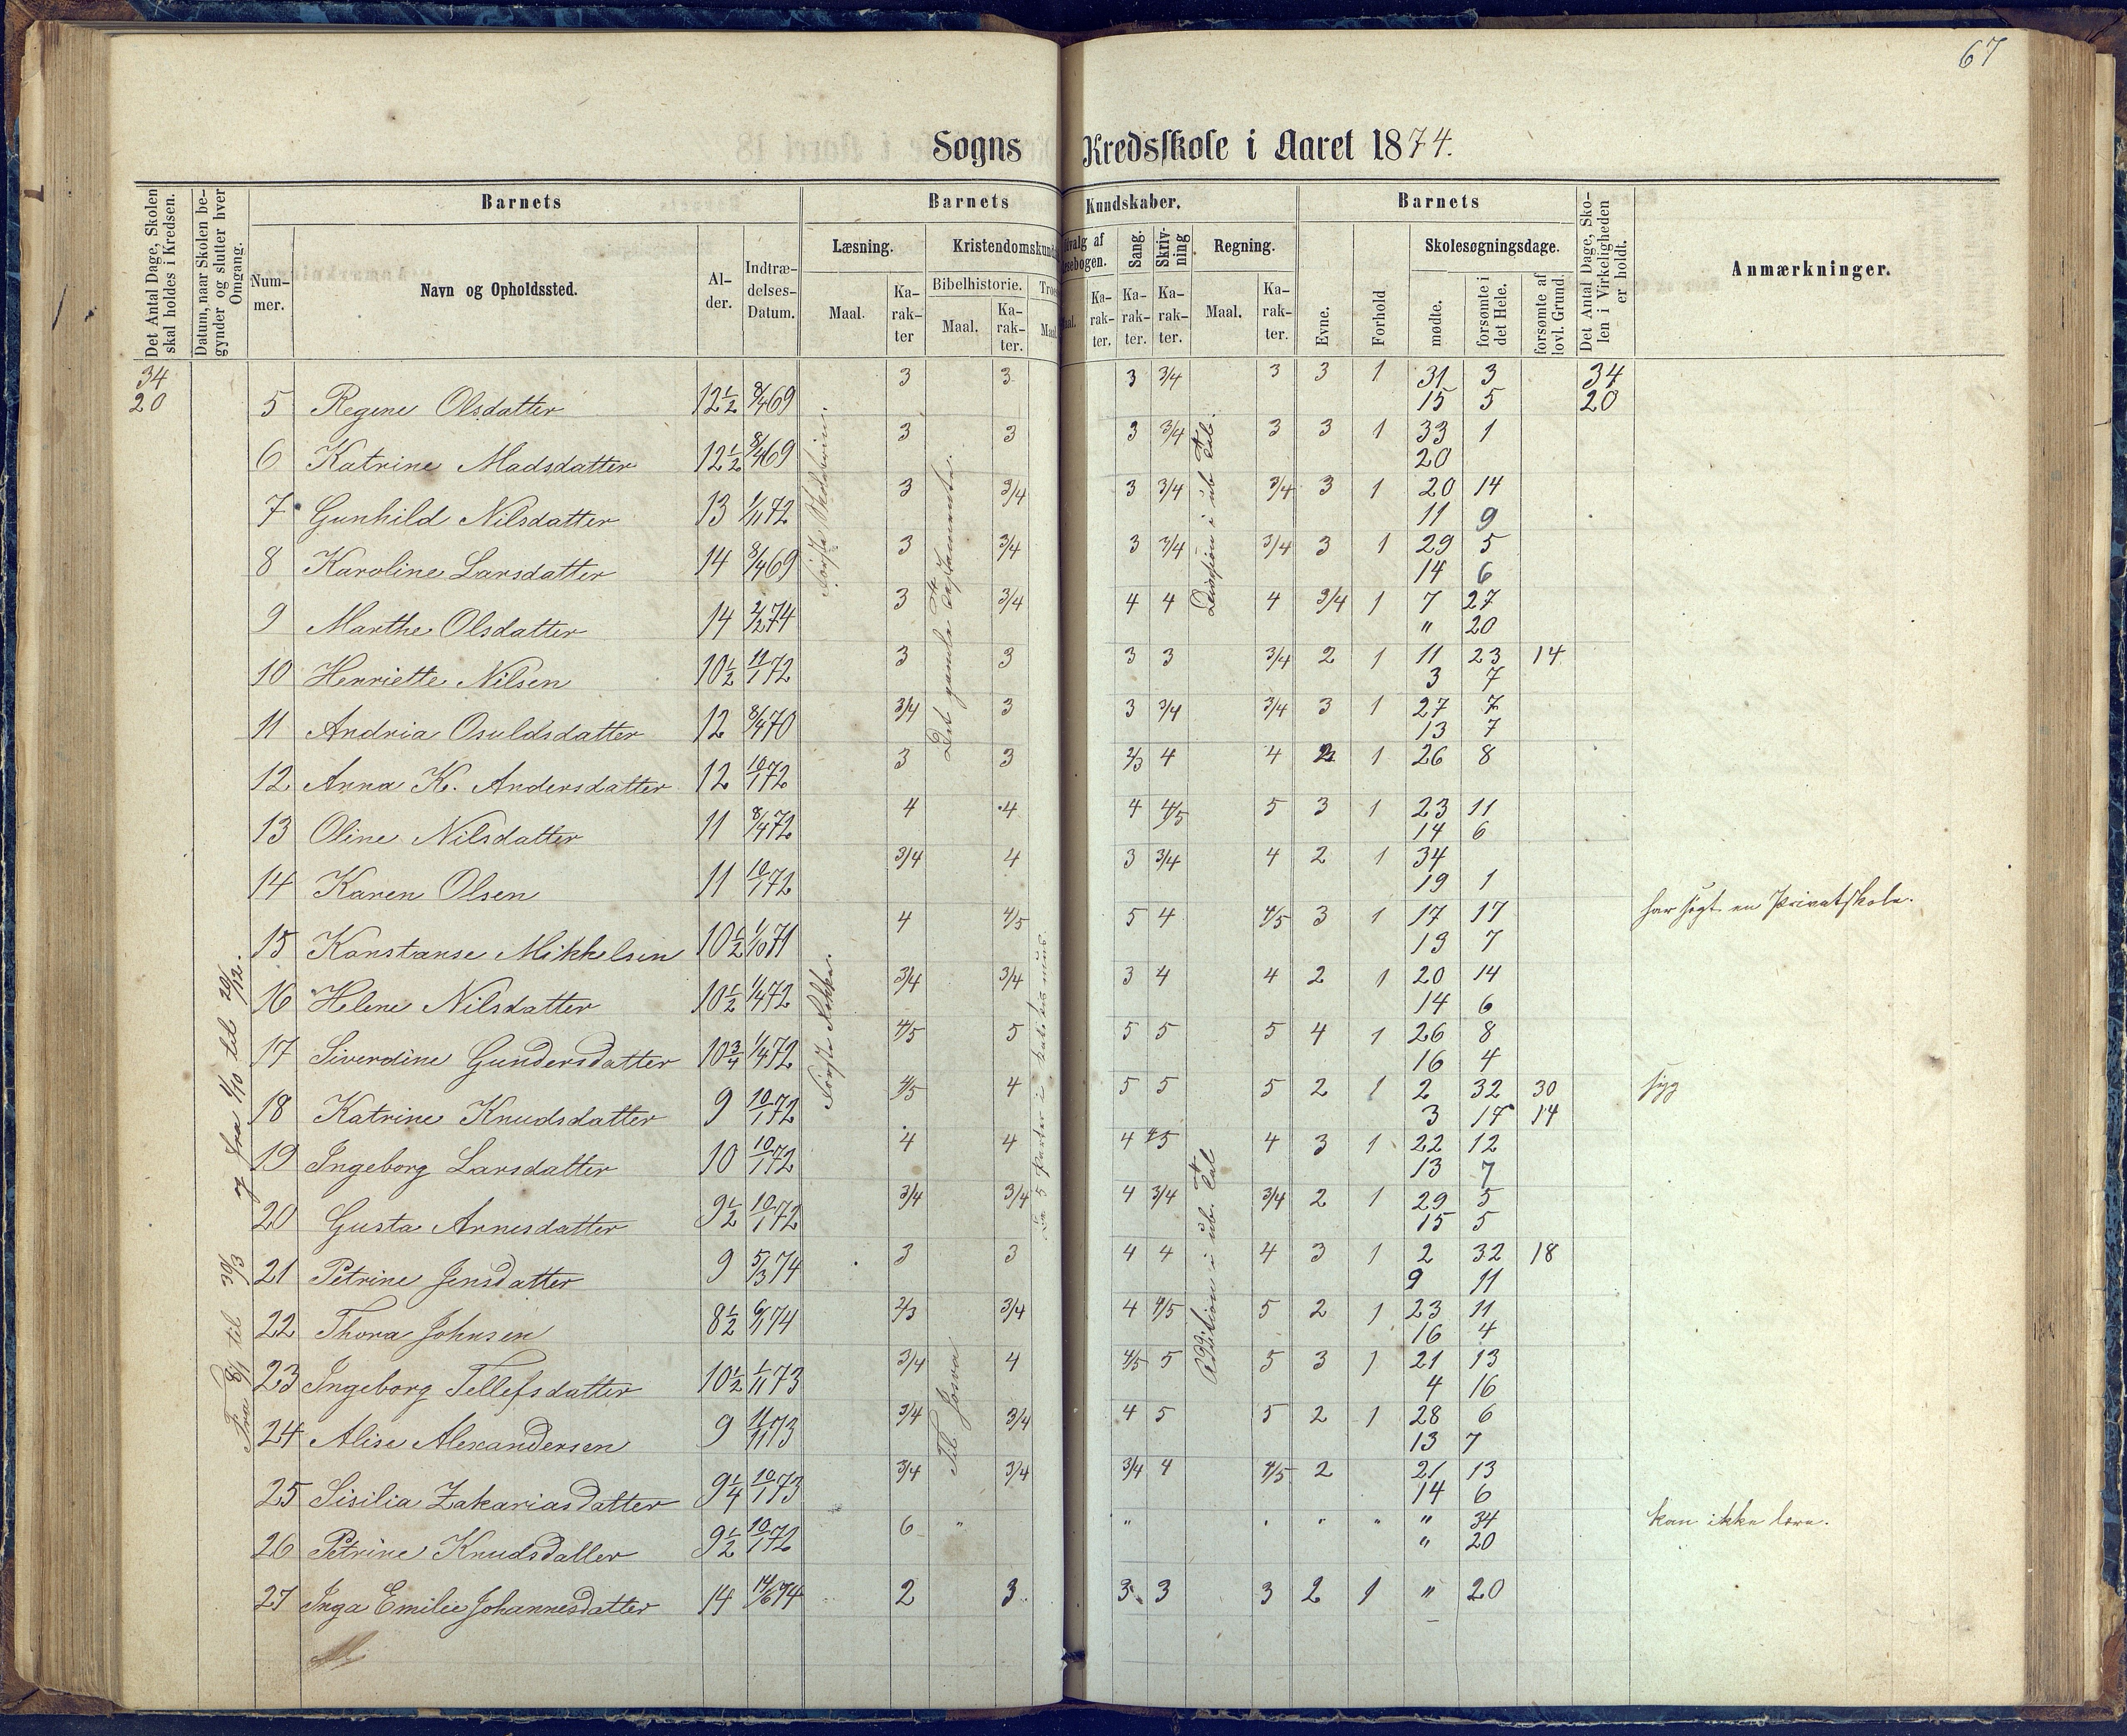 67
Sogns Kredsskole i Aaret 1874.
Det Antal Dage, Skolen skal holdes i Kredsen.
Datum, naar Skolen begynder og slutter hver Omgang.
Barnets
Nummer.
Navn og Opholdssted.
Alder.
Indtrædelses-Datum.
Barnets Kundskaber.
Læsning.
Maal.
Karakter
Kristendomskund
Bibelhistorie.
Maal.
Karakter.
Troes
Maal
valg af
sebogen.
Karakter.
Sang.
Karakter.
Skrivning
Karakter.
Regning.
Maal.
Karakter.
Barnets
Evne.
Forhold
Skolesøgningsdage.
mødte.
forsømte i det Hele.
forsømte af lovl. Grund.
Det Antal Dage, Skolen i Virkeligheden er holdt.
Anmærkninger.
34 3 3 3 3/4 3 3 1 31 3 34
20 5 Regine Olsdatter 12½ 8/4 69 15 5 20
3 3 3 3/4 3 3 1 33 1
6 Katrine Madsdatter 12½ 8/4 69 20
3 3/4 3 3/4 3/4 3 1 20 14
7 Gunhild Nilsdatter 13 1/11 72 11 9
3 3/4 3 3/4 3/4 3 1 29 5
8 Karoline Larsdatter 14 8/4 69 14 6
3 3/4 4 4 4 3/4 1 7 27
9 Marthe Olsdatter 14 2/2 74 " 20
3 3 3 3 3/4 2 1 11 23 14
10 Henriette Nilsen 10½ 11/1 72 3 7
3/4 3 3 3/4 3/4 3 1 27 7
11 Andria Osuldsdatter 12 8/4 70 13 7
3 3 2/3 4 4 1 26 8
12 Anna K. Andersdatter 12 10/1 72
4 4 4 4/5 5 3 1 23 11
13 Oline Nilsdatter 11 8/4 72 14 6
3/4 4 3 3/4 4 2 1 34
14 Karen Olsen 11 10/1 72 19 1
4 4/5 5 4 4/5 3 1 17 17 har søgt en Privatskole.
15 Konstanse Mikkelsen 10½ 1/10 71 13 7
3/4 3/4 3 4 4 2 1 20 14
16 Helene Nilsdatter 10½ 1/4 72 14 6
4/5 5 5 5 5 4 1 26 8
17 Siverdine Gundersdatter 10¾ 1/4 72 16 4
4/5 4 5 5 5 2 1 2 32 30 syg
18 Katrine Knudsdatter 9 10/1 72 3 17 14
4 4 4 4/5 4 3 1 22 12
19 Ingeborg Larsdatter 10 10/1 72 13 7
3/4 3/4 4 3/4 3/4 2 1 29 5
20 Gusta Arnesdatter 9½ 10/1 72 15 5
3 3 4 4 4 3 1 2 32 18
21 Petrine Jensdatter 9 5/3 74 9 11
2/3 3/4 4 4/5 5 2 1 23 11
22 Thora Johnsen 8½ 6/1 74 16 4
3/4 4 4/5 5 5 3 1 21 13
23 Ingeborg Tellefsdatter 10½ 1/11 73 4 16
3/4 3/4 4 5 5 2 1 28 6
24 Alise Alexandersen 9 11/11 73 13 7
3/4 3/4 3/4 4 4/5 2 21 13
25 Sisilia Zakariasdatter 9¼ 10/1 73 14 6
6 " " " " " " 34 kan ikke lære.
26 Petrine Knudsdatter 9½ 10/1 72 " 20
27 Inga Emilie Johannesdatter 14 14/6 74 2 3 3 3 3 2 1 " 20
Fra 8/1 til 30/3 og fra 1/10 til 20/12.
Første Række.
Det gamle Testamente.
Til Josva
Division i ub. Tal.
Addition i ub. Tal